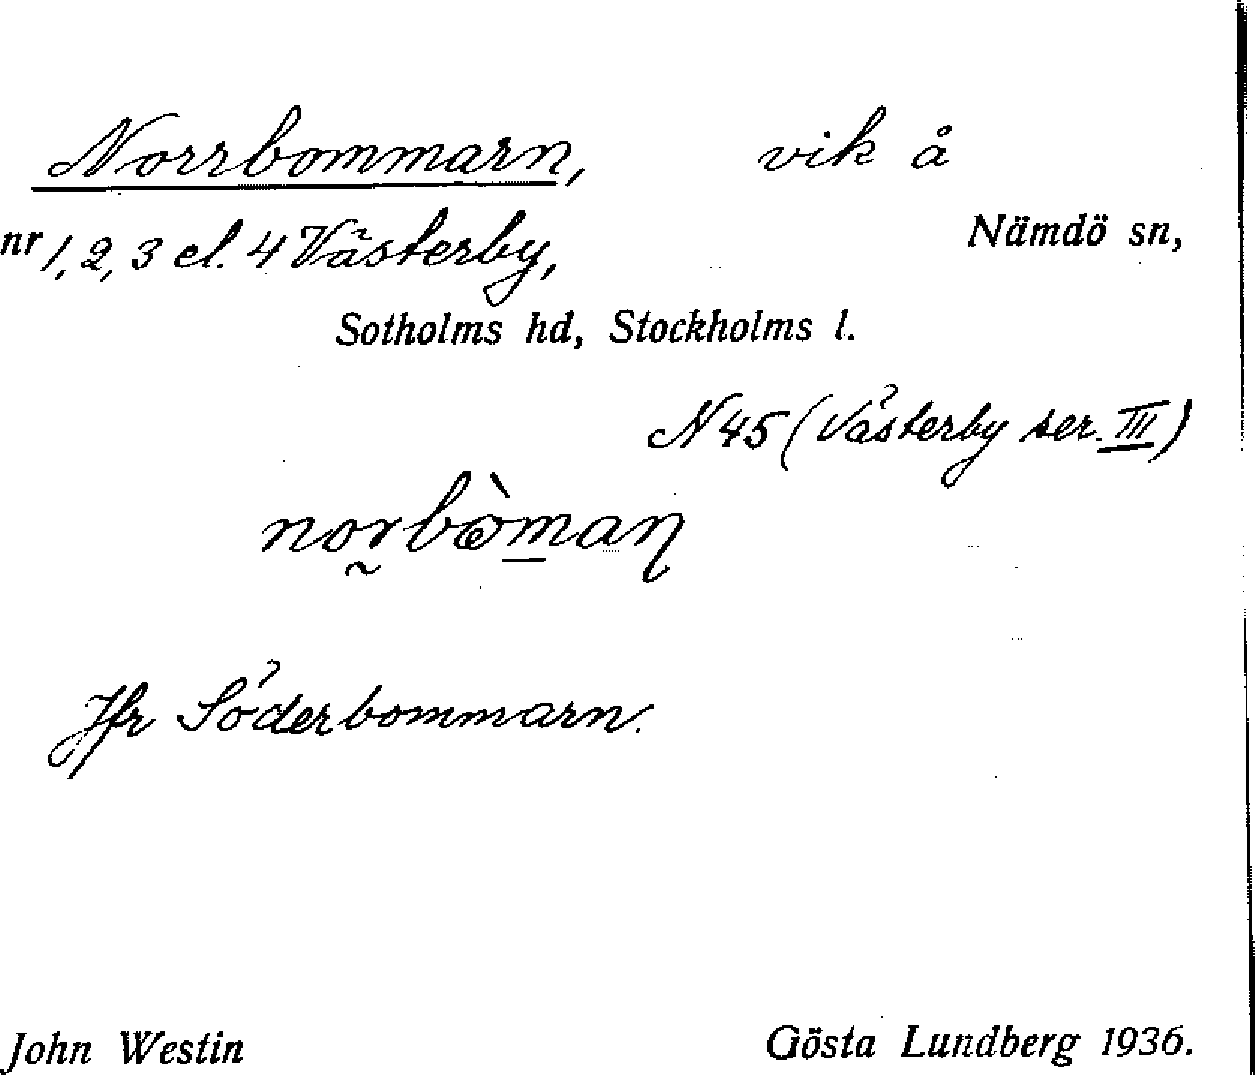 Norrbommarn, vik å
nr 1, 2, 3 el. 4 Västerby, Nämdö sn,
Sotholms hd, Stockholms l.
N 45 (Västerby ser. III)
Jfr Söderbommarn.
John Westin Gösta Lundberg 1936.